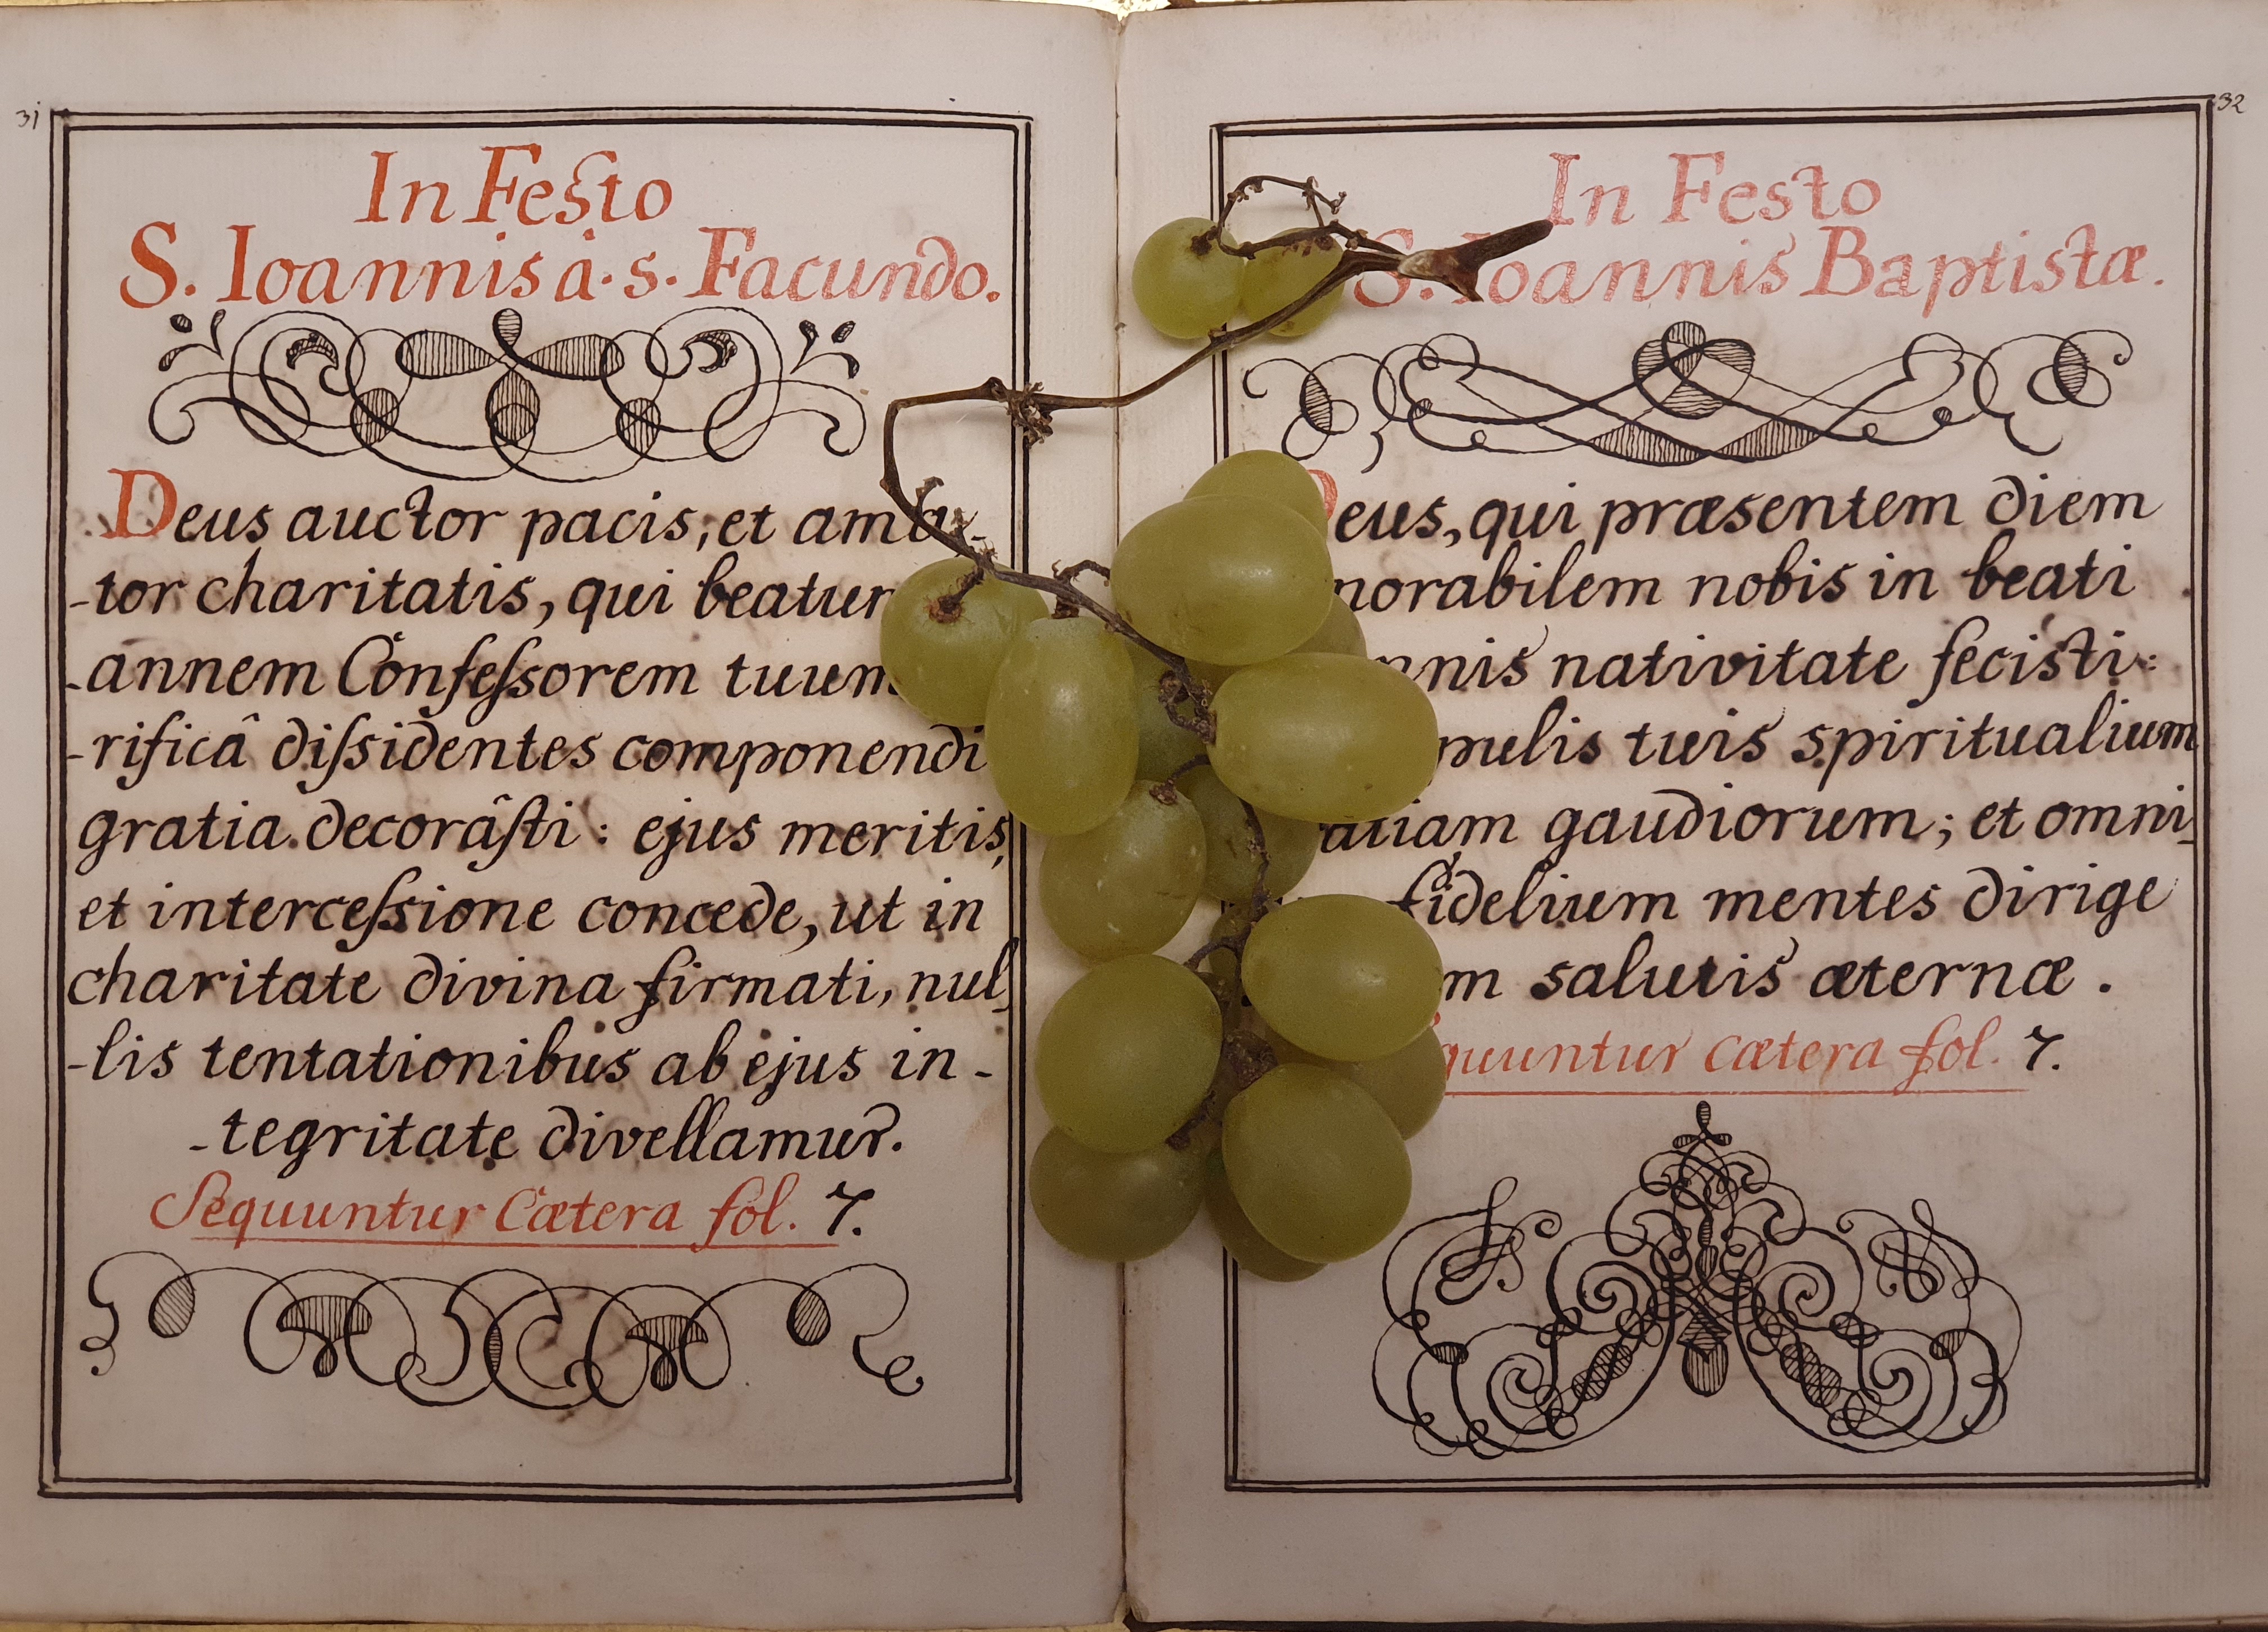 31
In Festo
S. Ioannis à. s. Facundo.
Deus auctor pacis, et ama-
-tor charitatis, qui
-annem Confessorem tuum
-rificâ dissidentes componendi
gratia decorâsti: ejus meritis,
et intercessione concede, ut in
charitate divina firmati, nul-
-lis tentationibus ab ejus in-
-tegritate divellamur.
Sequuntur Cætera fol. 7.
32
In Festo
S. Ioannis Baptistæ.
Deus, qui præsentem diem
nobis in beati
nativitate fecisti:
tuis spiritualium
gaudiorum; et omni-
fidelium mentes dirige
salutis æternæ.
cætera fol. 7.